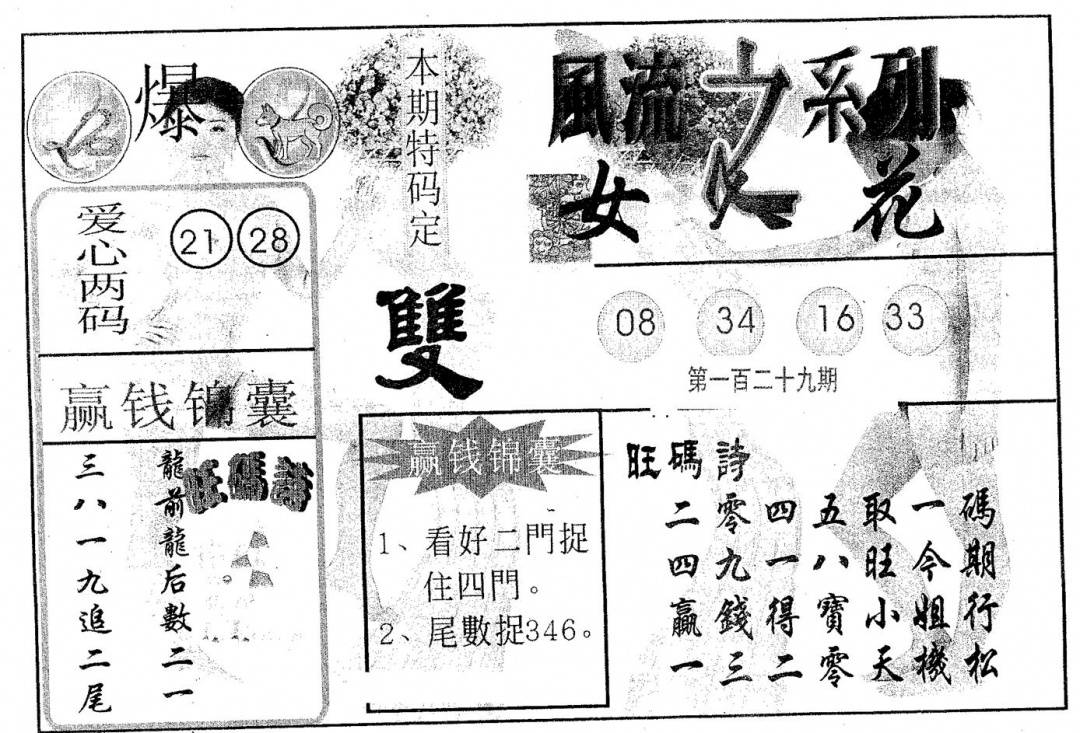 爆
本期特码定
雙
風流之系列
女花
爱心两码
21 28
08 34 16 33
第一百二十九期
赢钱锦囊
旺碼詩
龍前龍后數二一
三八一九追二尾
赢钱锦囊
1、看好二門捉
住四門。
2、尾數捉346。
旺碼詩
二零四五取一碼
四九一八旺今期
贏錢得寶小姐行
一三二零天機松